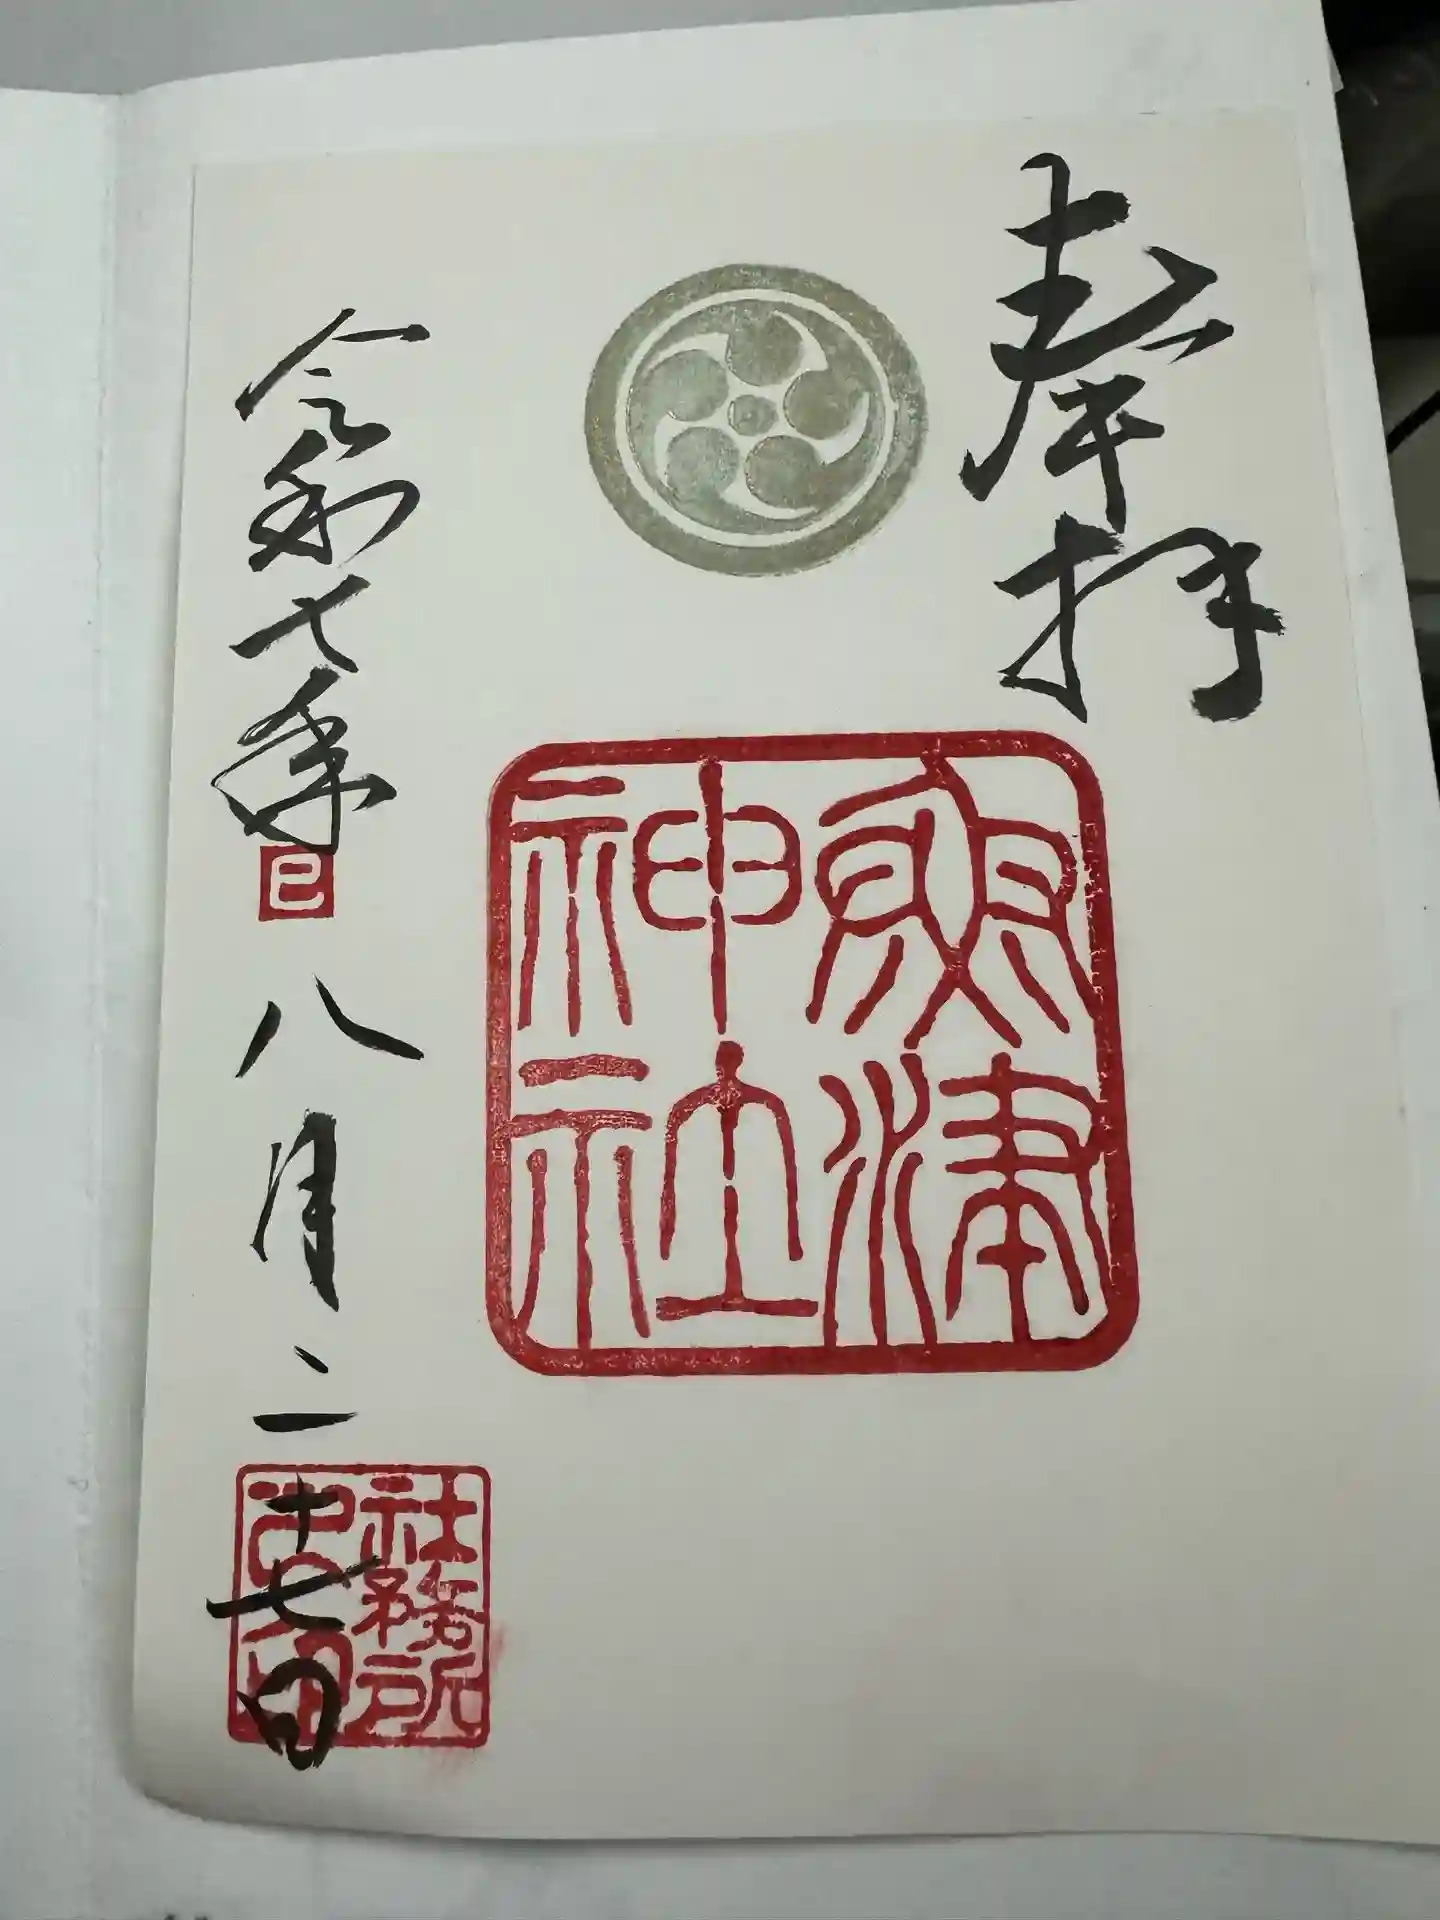 奉拝
津神社
令和七年
巳
八月二十七日
社務所
之印